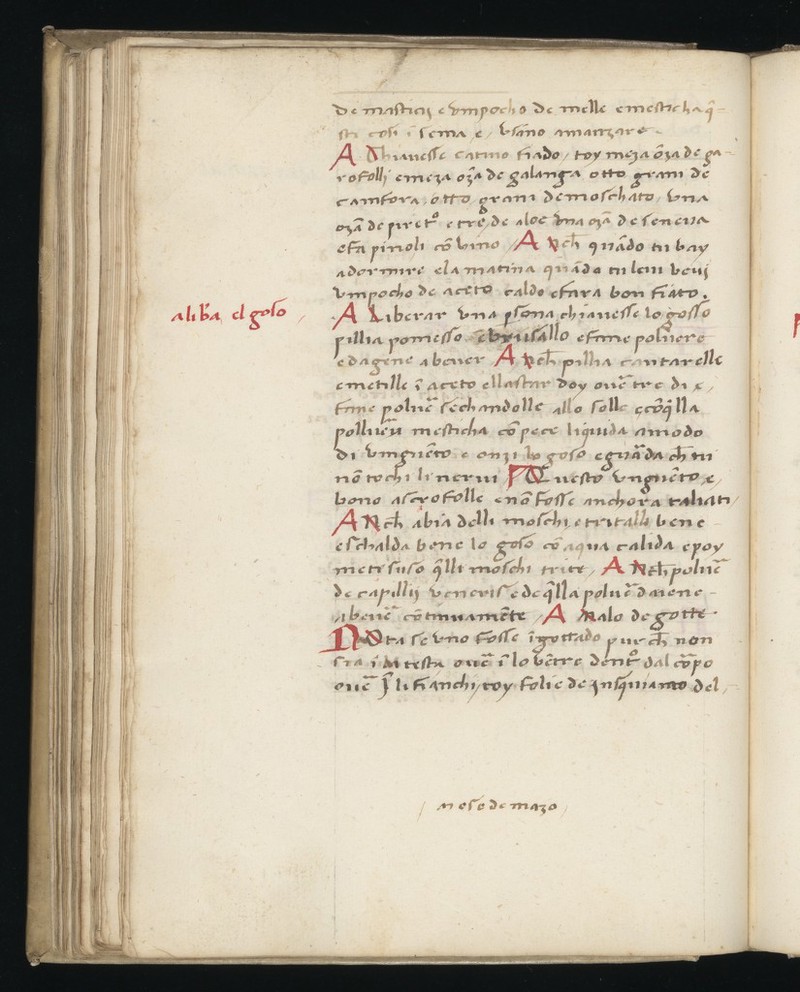 de mastici e vmpocho de melle e mesticha q̄
sti cosi ī sema e, vsano amanzare
A Chiauesse catiuo fiado, toy meza oz̄a de ga
rofolli e meza oz̄a de galanga otto grani de
camfora, otto grani de moschato, vna
oz̄a de piret° e tre de aloe vna oz̄a de seneua
e fa pinoli cō vino, A Nch̄ quādo tu vay
a dormire e la matina quādo tu leui beui
vmpocho de aceto caldo e fara bon fiato.
A Liberar vna p̱sona chiauesse lo gosso
pillia pomesso e brusallo e fame poluere
e dagene a beuer A Nch̄ pillia cantarelle
e metille ī aceto e llastar doy ouē tre di e,
fane poluē sechandolle allo solle e cō q̄lla
polluera mesticha cō pece liquida a modo
di vnguēto e onzi lo goso e guāda ch̄ tu
nō tochi li nerui, Questo vnguēto, e,
bono a scrofolle e nō fosse anchora taliati
A Nch̄ abia delli moschi e tritalli bene
e schalda bene lo goso cō aqua calida e poy
meti suso q̄lli moschi trite, A Nch̄ poluē
de capillij veneris e de q̄lla poluē daiene
a beuē cōtinuamēte, A Malo de gotte
NOta se vno fosse īgottado pur ch̄ non
sia ī la testa ouē ī lo vētre dent° dal cōpo
ouē ī li fianchi, toy folie de jnsquiamo del
a lib̄a el goso
m eso de mazo